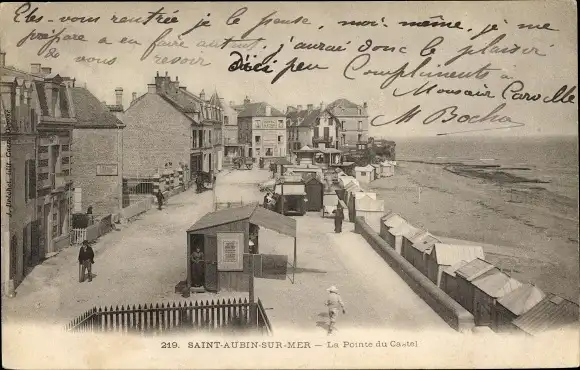 Êtes-vous rentrée je le pense, moi-même, je me
prépare a en faire autant, j'aurai donc le plaisir
de vous revoir d'ici peu Compliments à
Monsieur Carville
M Bocha
219. SAINT-AUBIN-SUR-MER – La Pointe du Castel